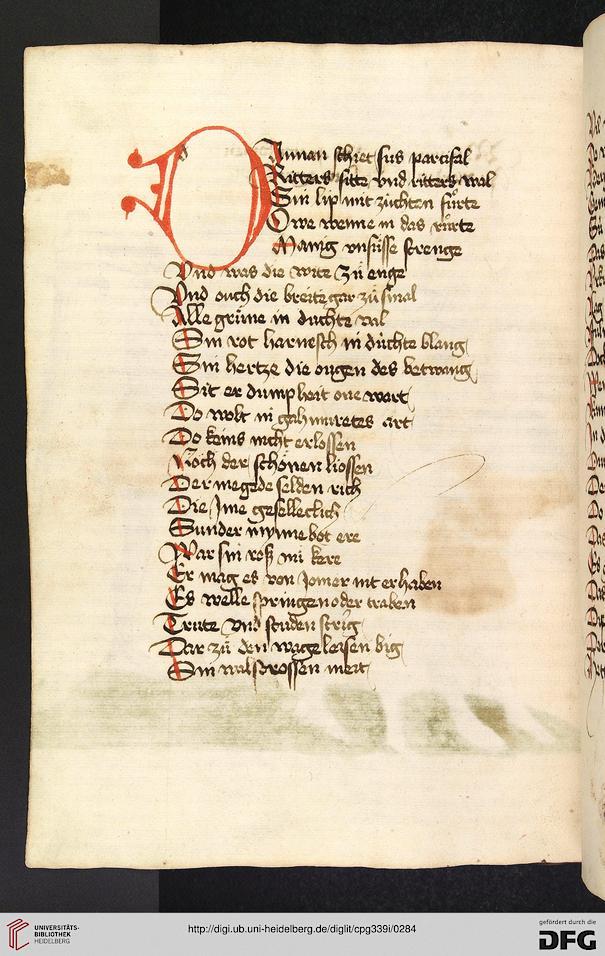 DInnan schiet sus parcifal
Ritters sitte vnd ritters mal
Sin lip mit zúchten fůrte
Owe wenne in das růrte
Manig vnsússe strenge
Vnd was die wite zů enge
Vnd ouch die breite gar zů smal
Alle grúne in duchte val
Sin rot harnesch in dúchte blang
Sin hertze die ougen des betwang
Sit er dumpheit one wart
Do wolt in gahmuretes art
Do keins nicht erlossen
Noch der schônen liossen
Der megede selden rich
Die Ime geselleclich
Sunder mynne bot ere
War sin roß nu kere
Er mag es von Jomer nit erhaben
Es welle springen oder traben
Crutze vnd studen strig
Dar zů den wage leisen big
Sin walstrossen meit
UNIVERSITÄTS-
BIBLIOTHEK
HEIDELBERG
http://digi.ub.uni-heidelberg.de/diglit/cpg339i/0284
gefördert durch die
DFG